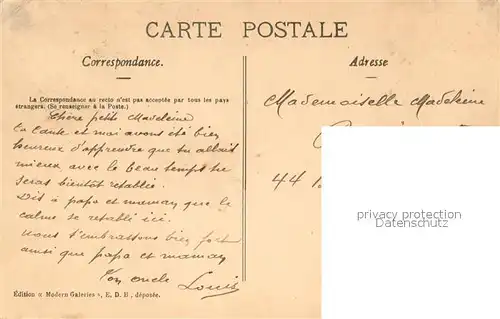 CARTE POSTALE
Correspondance.
Adresse
La Correspondance au recto n'est pas acceptée par tous les pays
étrangers. (Se renseigner à la Poste.)
Chère petite Madeleine
Ta tante et moi avons été bien
heureux d'apprendre que tu allait
mieux avec le beau temps tu
seras bientôt retablie.
Dit à papa et maman que le
calme se retabli ici.
Nous t'embrassons bien fort
ainsi que papa et maman
Ton oncle Louis
Édition « Modern Galeries », E. D. B, déposée.
Mademoiselle Madeleine
44
privacy protection
Datenschutz